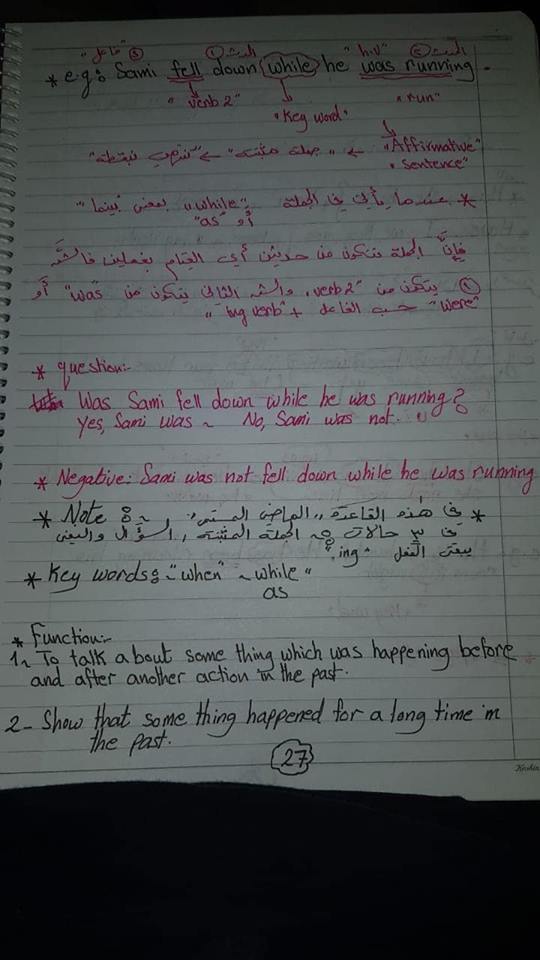 "فاعل" ③ الحدث ① "h.v" الحدث ②
* e.g: Sami fell down while he was running.
"verb 2" "run"
"Key word"
"Affirmative" ← "جملة مثبتة" ← "تنتهي بنقطة"
"Sentence"
* عندما يأتي في الجملة "while" بمعنى "بينما"
أو "as"
فإن الجملة تتكون من حدثين أي القيام بفعلين فالحدث
① يتكون من "verb 2" والحدث الثاني يتكون من "was" أو
"were" حسب الفاعل + "ing verb"
* question:-
Was Sami fell down while he was running?
Yes, Sami was ~ No, Sami was not.
* Negative: Sami was not fell down while he was running
* Note: * في هذه القاعدة "الماضي المستمر"
في ٣ حالات الجملة المثبتة، السؤال والنفي
يبقى الفعل "ing".
* Key words: "when" ~ while"
as
* Function:-
1- To talk about some thing which was happening before
and after another action in the past.
2- Show that some thing happened for a long time in
the past.
27